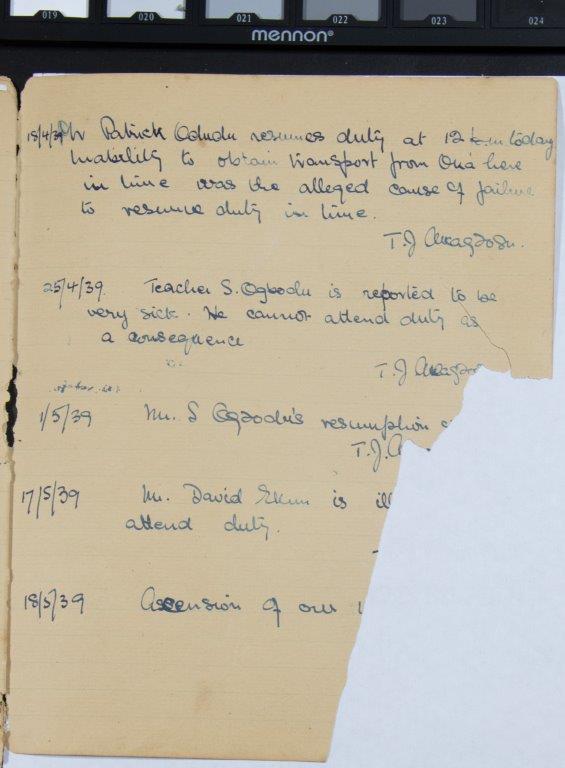 019 020 021 022 023 024
mennon®
18/4/39 Mr Patrick Odudu resumes duty at 12 today
Inability to obtain transport from here
in time was the alleged cause of failure
to resume duty in time.
T.J
25/4/39. Teacher S. Ogbodu is reported to be
very sick. He cannot attend duty as
a consequence
T.J
1/5/39 Mr. S Ogbodu's resumption
T.J.
17/5/39 Mr. David is ill
attend duty.
18/5/39 Ascension of our